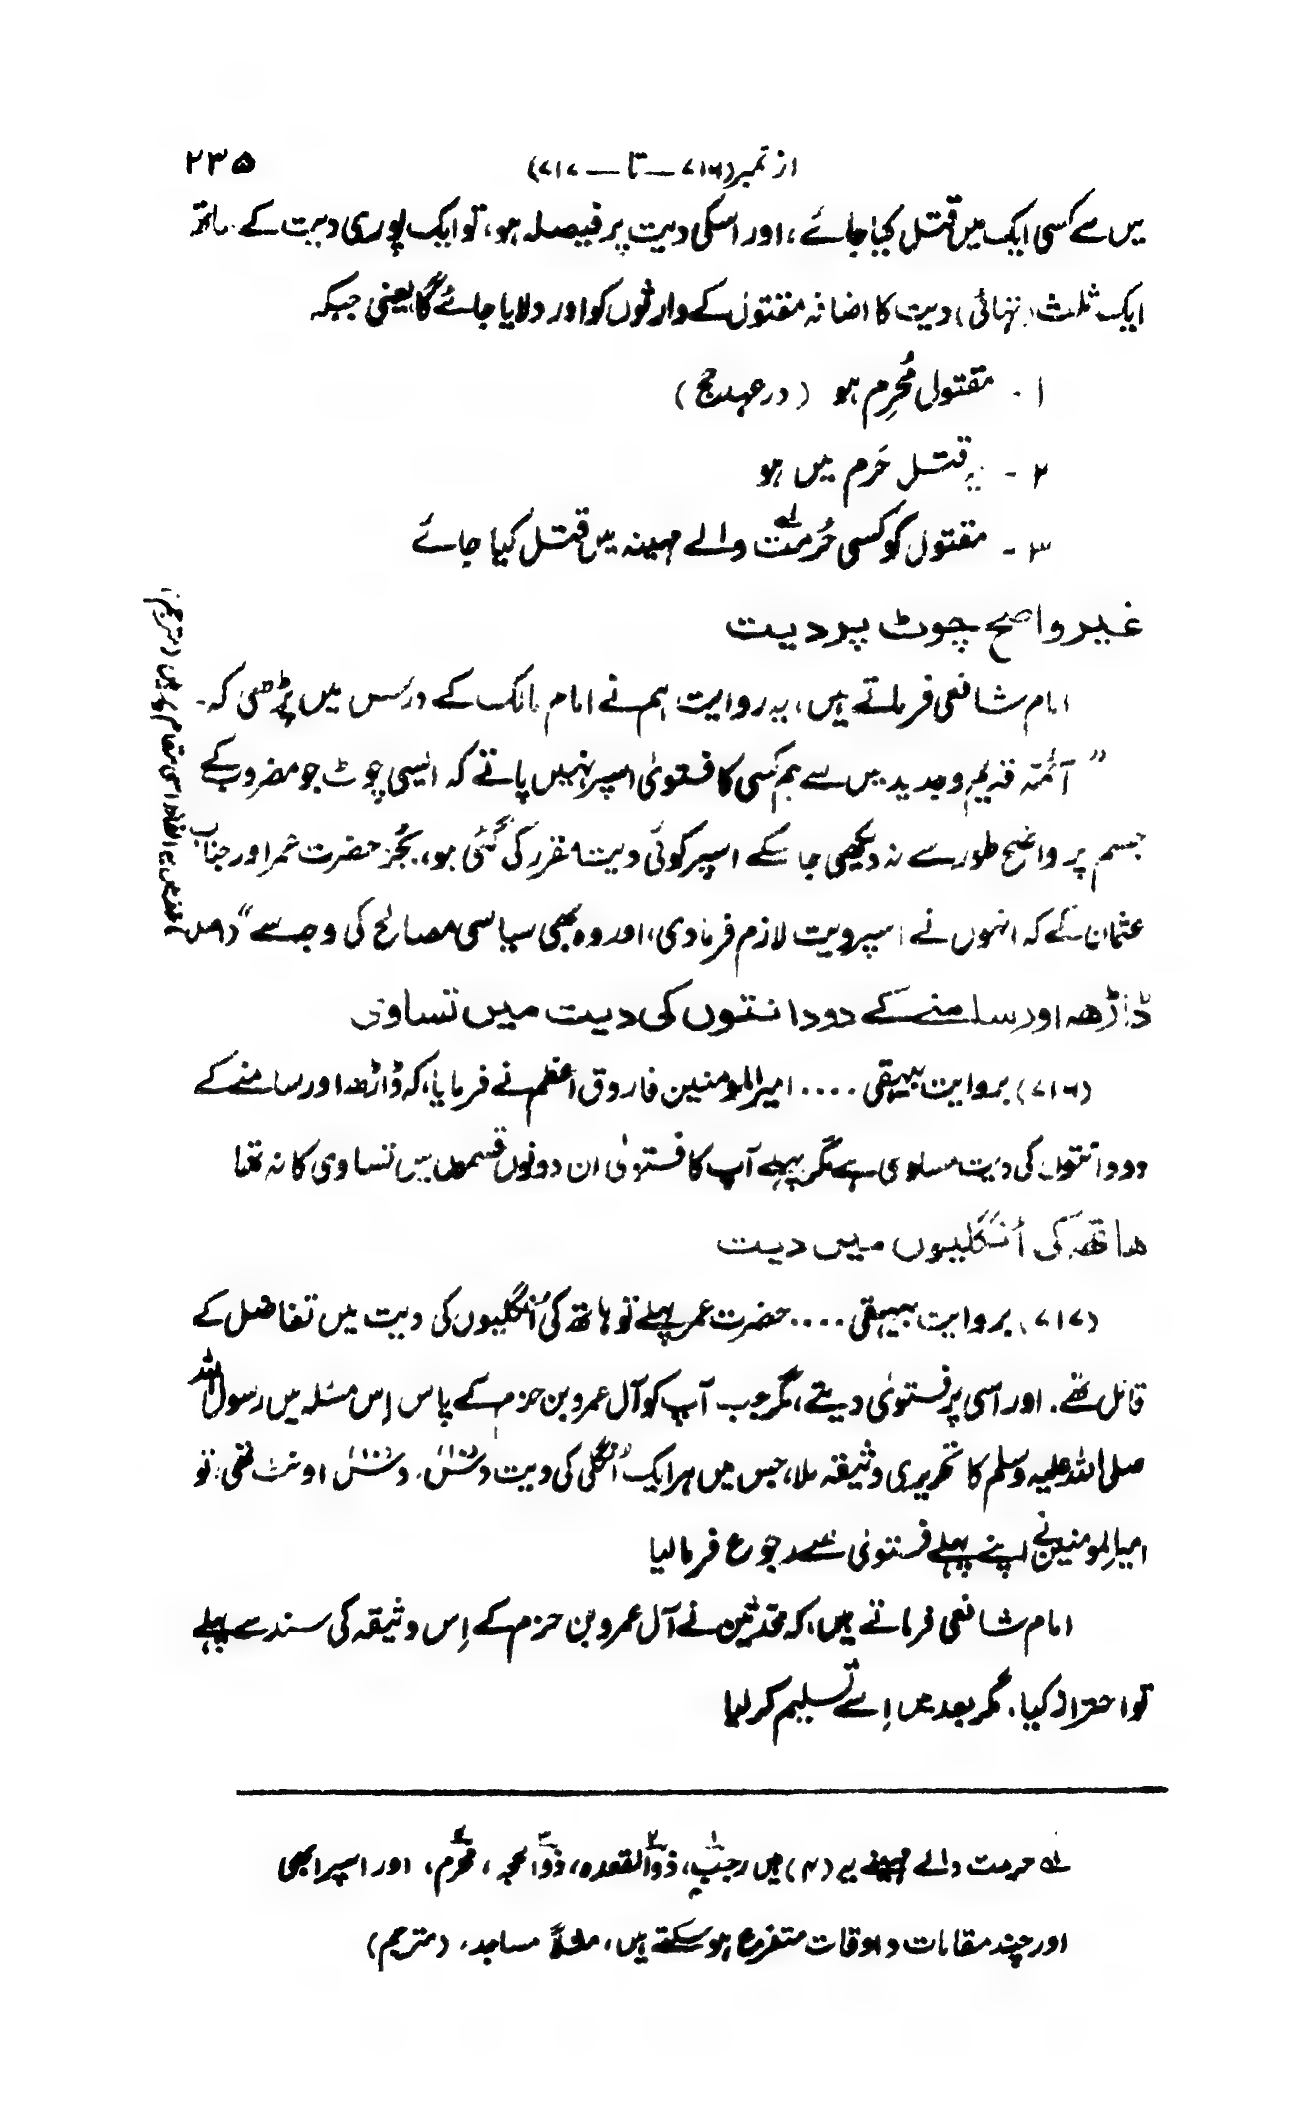 از نمبر (۷۱۶ — تا — ۷۱۷) ۲۳۵
میں سے کسی ایک میں قتل کیا جائے، اور اسکی دیت پر فیصلہ ہو، تو ایک پوری دیت کے ساتھ
ایک ثلث (تہائی) دیت کا اضافہ مقتول کے وارثوں کو اور دلایا جائے گا یعنی جبکہ
۱ - مقتول مُحرِم ہو (در عہد حج)
۲ - یہ قتل حَرم میں ہو
۳ - مقتول کو کسی حُرمت لہ والے مہینہ میں قتل کیا جائے
غیر واضح چوٹ پر دیت
امام شافعی فرماتے ہیں، یہ روایت ہم نے امام مالک کے درس میں پڑھی کہ۔
” آئمّہ قدیم و جدید میں سے ہم کسی کا فتویٰ اسپر نہیں پاتے کہ ایسی چوٹ جو مضروب کے
جسم پر واضح طور سے نہ دیکھی جا سکے اسپر کوئی دیت مقرر کی گئی ہو، بجُز حضرت عمر اور جناب
عثمان کے کہ انہوں نے اسپر دیت لازم فرما دی، اور وہ بھی سیاسی مصالح کی وجہ سے“ (اصل
الفاظ اسی مقام پر ہیں (مترجم)
ڈاڑھ اور سامنے کے دو دانتوں کی دیت میں تساوی
(۷۱۶) بروایت بیہقی .... امیر المومنین فاروق اعظم نے فرمایا، کہ ڈاڑھ اور سامنے کے
دو دانتوں کی دیت مساوی ہے مگر پہلے آپ کا فتویٰ ان دونوں قسموں میں تساوی کا نہ تھا
ھاتھ کی اُنگلیوں میں دیت
(۷۱۷) بروایت بیہقی .... حضرت عمر پہلے تو ہاتھ کی اُنگلیوں کی دیت میں تفاضل کے
قائل تھے. اور اسی پر فتویٰ دیتے، مگر جب آپ کو آل عمرو بن حزم کے پاس اِس مسئلہ میں رسول اللہ
صلی اللہ علیہ وسلم کا تحریری وثیقہ ملا، جس میں ہر ایک اُنگلی کی دیت دسن، دسن اونٹ تھی، تو
امیر المومنین نے اپنے پہلے فتویٰ سے رجوع فرما لیا
امام شافعی فرماتے ہیں، کہ محدثین نے آل عمرو بن حزم کے اِس وثیقہ کی سند سے پہلے
تو احتراز کیا، مگر بعد میں اِسے تسلیم کر لیا
لہ حرمت والے مہینے یہ (۴) ہیں رجب، ذوالقعدہ، ذوالحجہ، محرم، اور اسپر ابھی
اور چند مقامات و اوقات متفرع ہو سکتے ہیں، مثلاً مساجد، (مترجم)